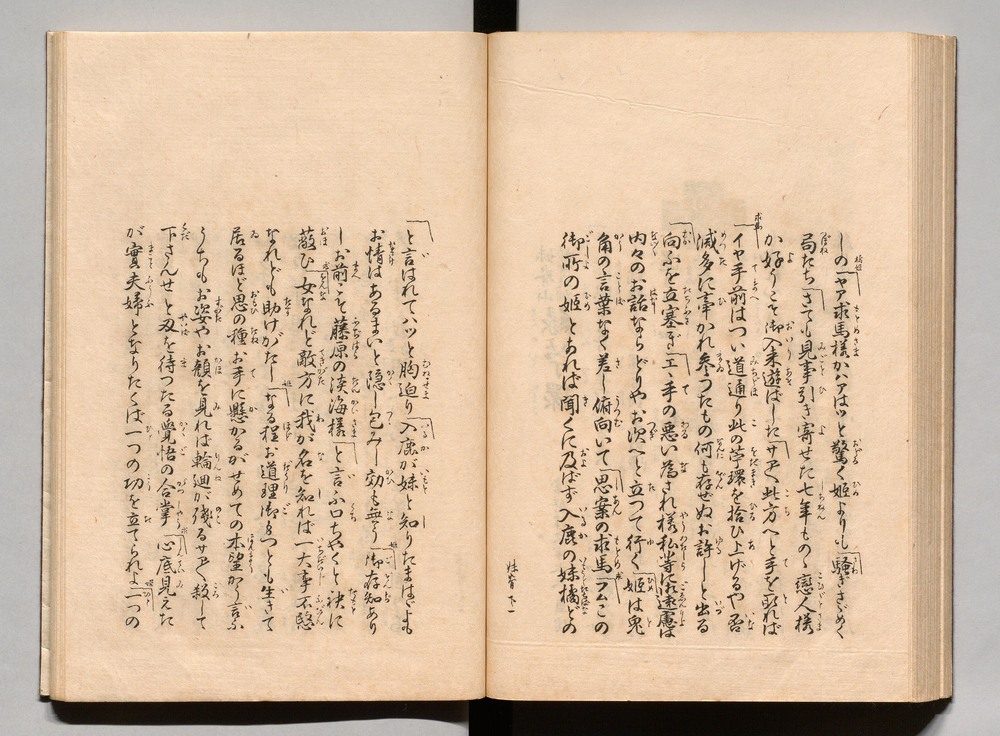 しの「ヤア求馬様かハアはッと驚く姫よりも「騒ぎざめく
局たち「さても見事引き寄せた七年もの〻戀人様
か好うこそ御入来遊ばしたサアく此方へと手を取れば
「イヤ手前はつい道通り此の苧環を拾ひ上げるや否
滅多に牽かれ参つたもの何も存ぜぬお許しと出る
向ふを立塞ぎ「エ〻手の悪い為され様私等に遠慮は
内々のお話ならどりやお次へと立つて行く「姫は鬼
角の言葉なく差し俯向いて「思案の求馬「ラムこの
御所の姫とあれば聞くに及ばず入鹿の妹橘どの
妹脊下一
「と言はれてハッと胸迫り「入鹿が妹と知りたまはゞよも
お情はあるまいと隠し包みし効も無う「御存知あり
しお前こそ藤原の淡海様「と言ふ口ちやくと袂に
蔽ひ「女なれど敵方に我が名を知れば一大事不愍
なれども助けがたし「なる程お道理御もつとも生きて
居るほど思の種お手に懸かるがせめての本望かう言ふ
うちもお姿やお顔を見れば輪廻が残るサアく殺して
下さんせと刃を待つたる覺悟の合掌「心底見えた
が實夫婦となりたくば一つの功を立てられよ「一つの